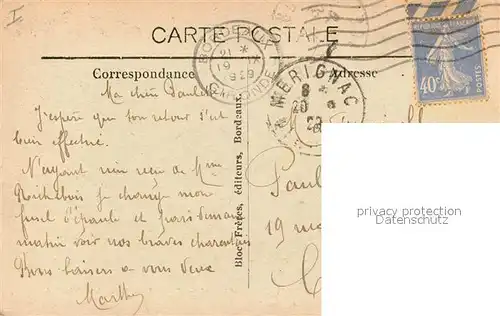 I
CARTE POSTALE
Correspondance
Adresse
BORDEAUX
GIRONDE
MERIGNAC
40c
Ma chère Paulette
J'espère que son retour s'est
bien effectué.
N'ayant rien reçu de Mme
Richebois je change mon
fusil d'épaule et j'irais demain
matin voir nos braves charentais
Bons baisers a vous deux
Marthe
Bloc Frères, éditeurs, Bordeaux.
19
privacy protection
Datenschutz